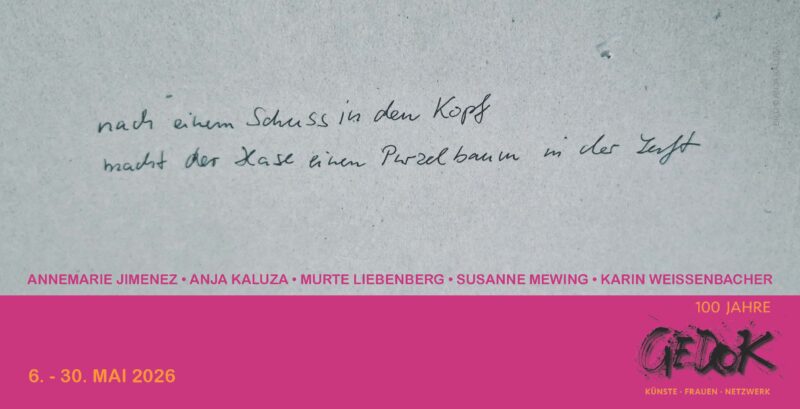 nach einem Schuss in den Kopf
macht der Hase einen Purzelbaum in der Luft
ANNEMARIE JIMENEZ • ANJA KALUZA • MURTE LIEBENBERG • SUSANNE MEWING • KARIN WEISSENBACHER
100 JAHRE
GEDOK
KÜNSTE - FRAUEN - NETZWERK
6. - 30. MAI 2026